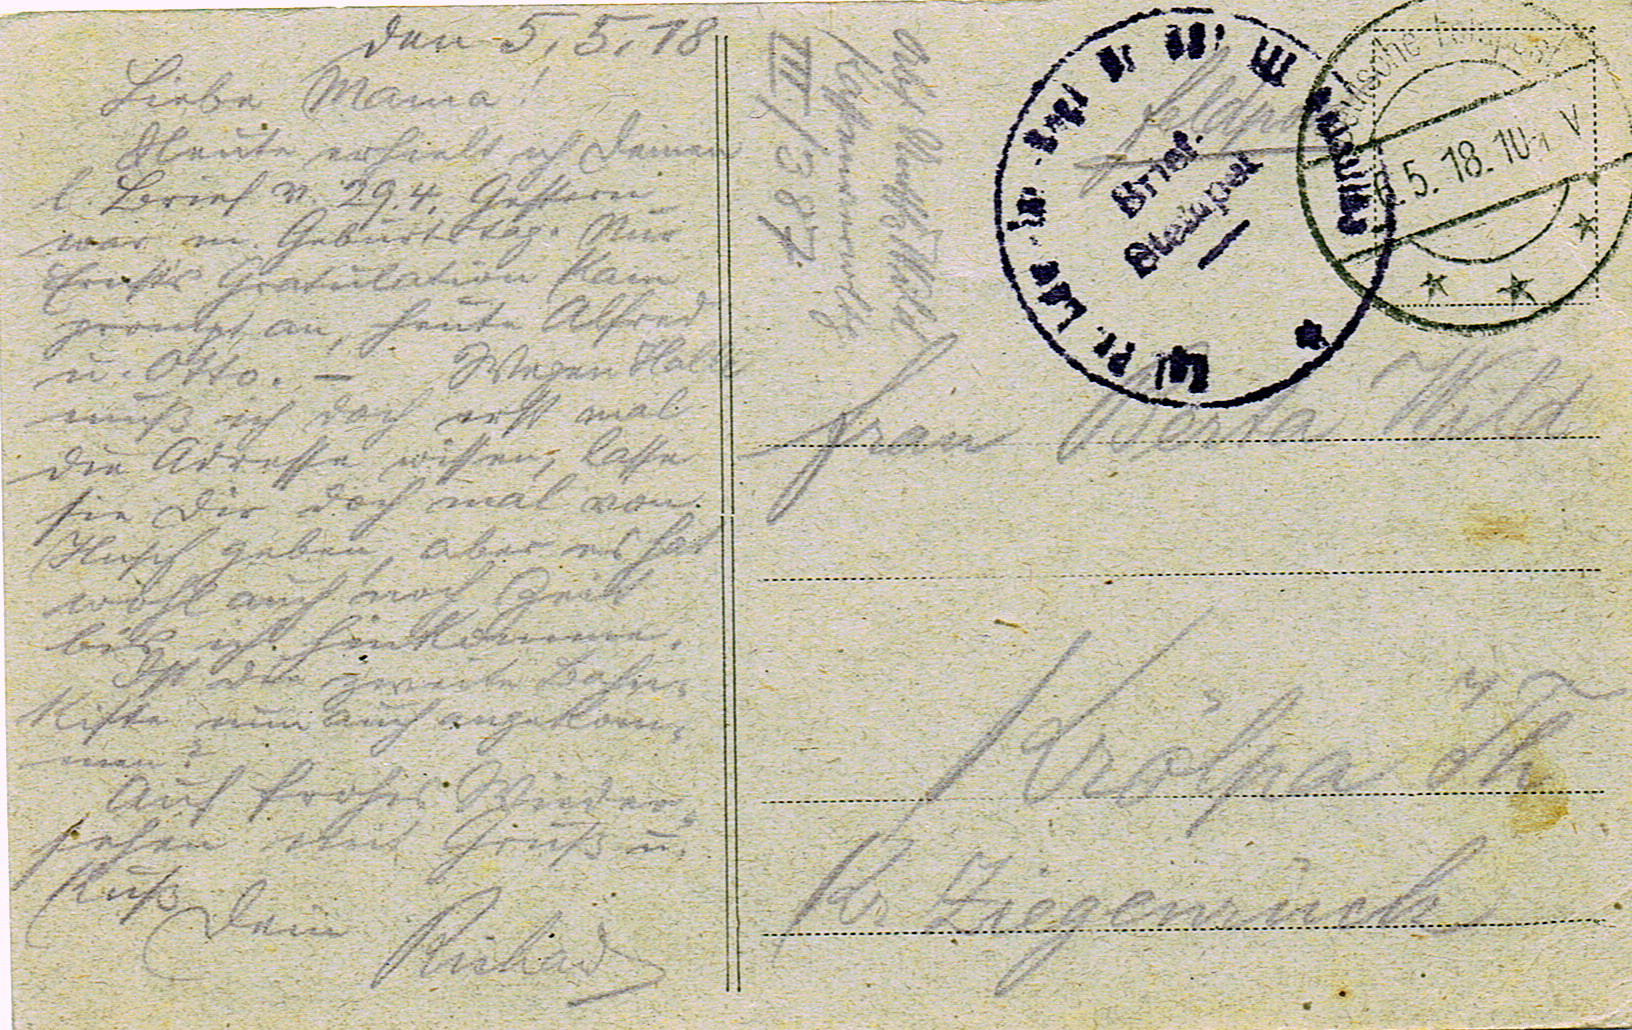 den 5.5.18
Liebe Mama!
Heute erhielt ich Deinen
l. Brief v. 29.4. Gestern
war m. Geburtstag. Nur
Ernsts Gratulation kam
prompt an, heute Alfred
u. Otto. – Wegen Halle
muß ich doch erst mal
die Adresse wissen, lasse
sie Dir doch mal von
geben, aber es hat
wohl auch noch Zeit
bis ich hinkomme.
Ist die zweite
Kiste nun auch angekom-
men?
Auf frohes Wieder-
sehen mit Gruß u.
Kuß
Dein
Richard
Wild
III/387.
Feldpost
Brief-
Stempel
Deutsche Feldpost
5.18.10-11 V
Frau Berta Wild
Krölpa i/Th
Kr Ziegenrück